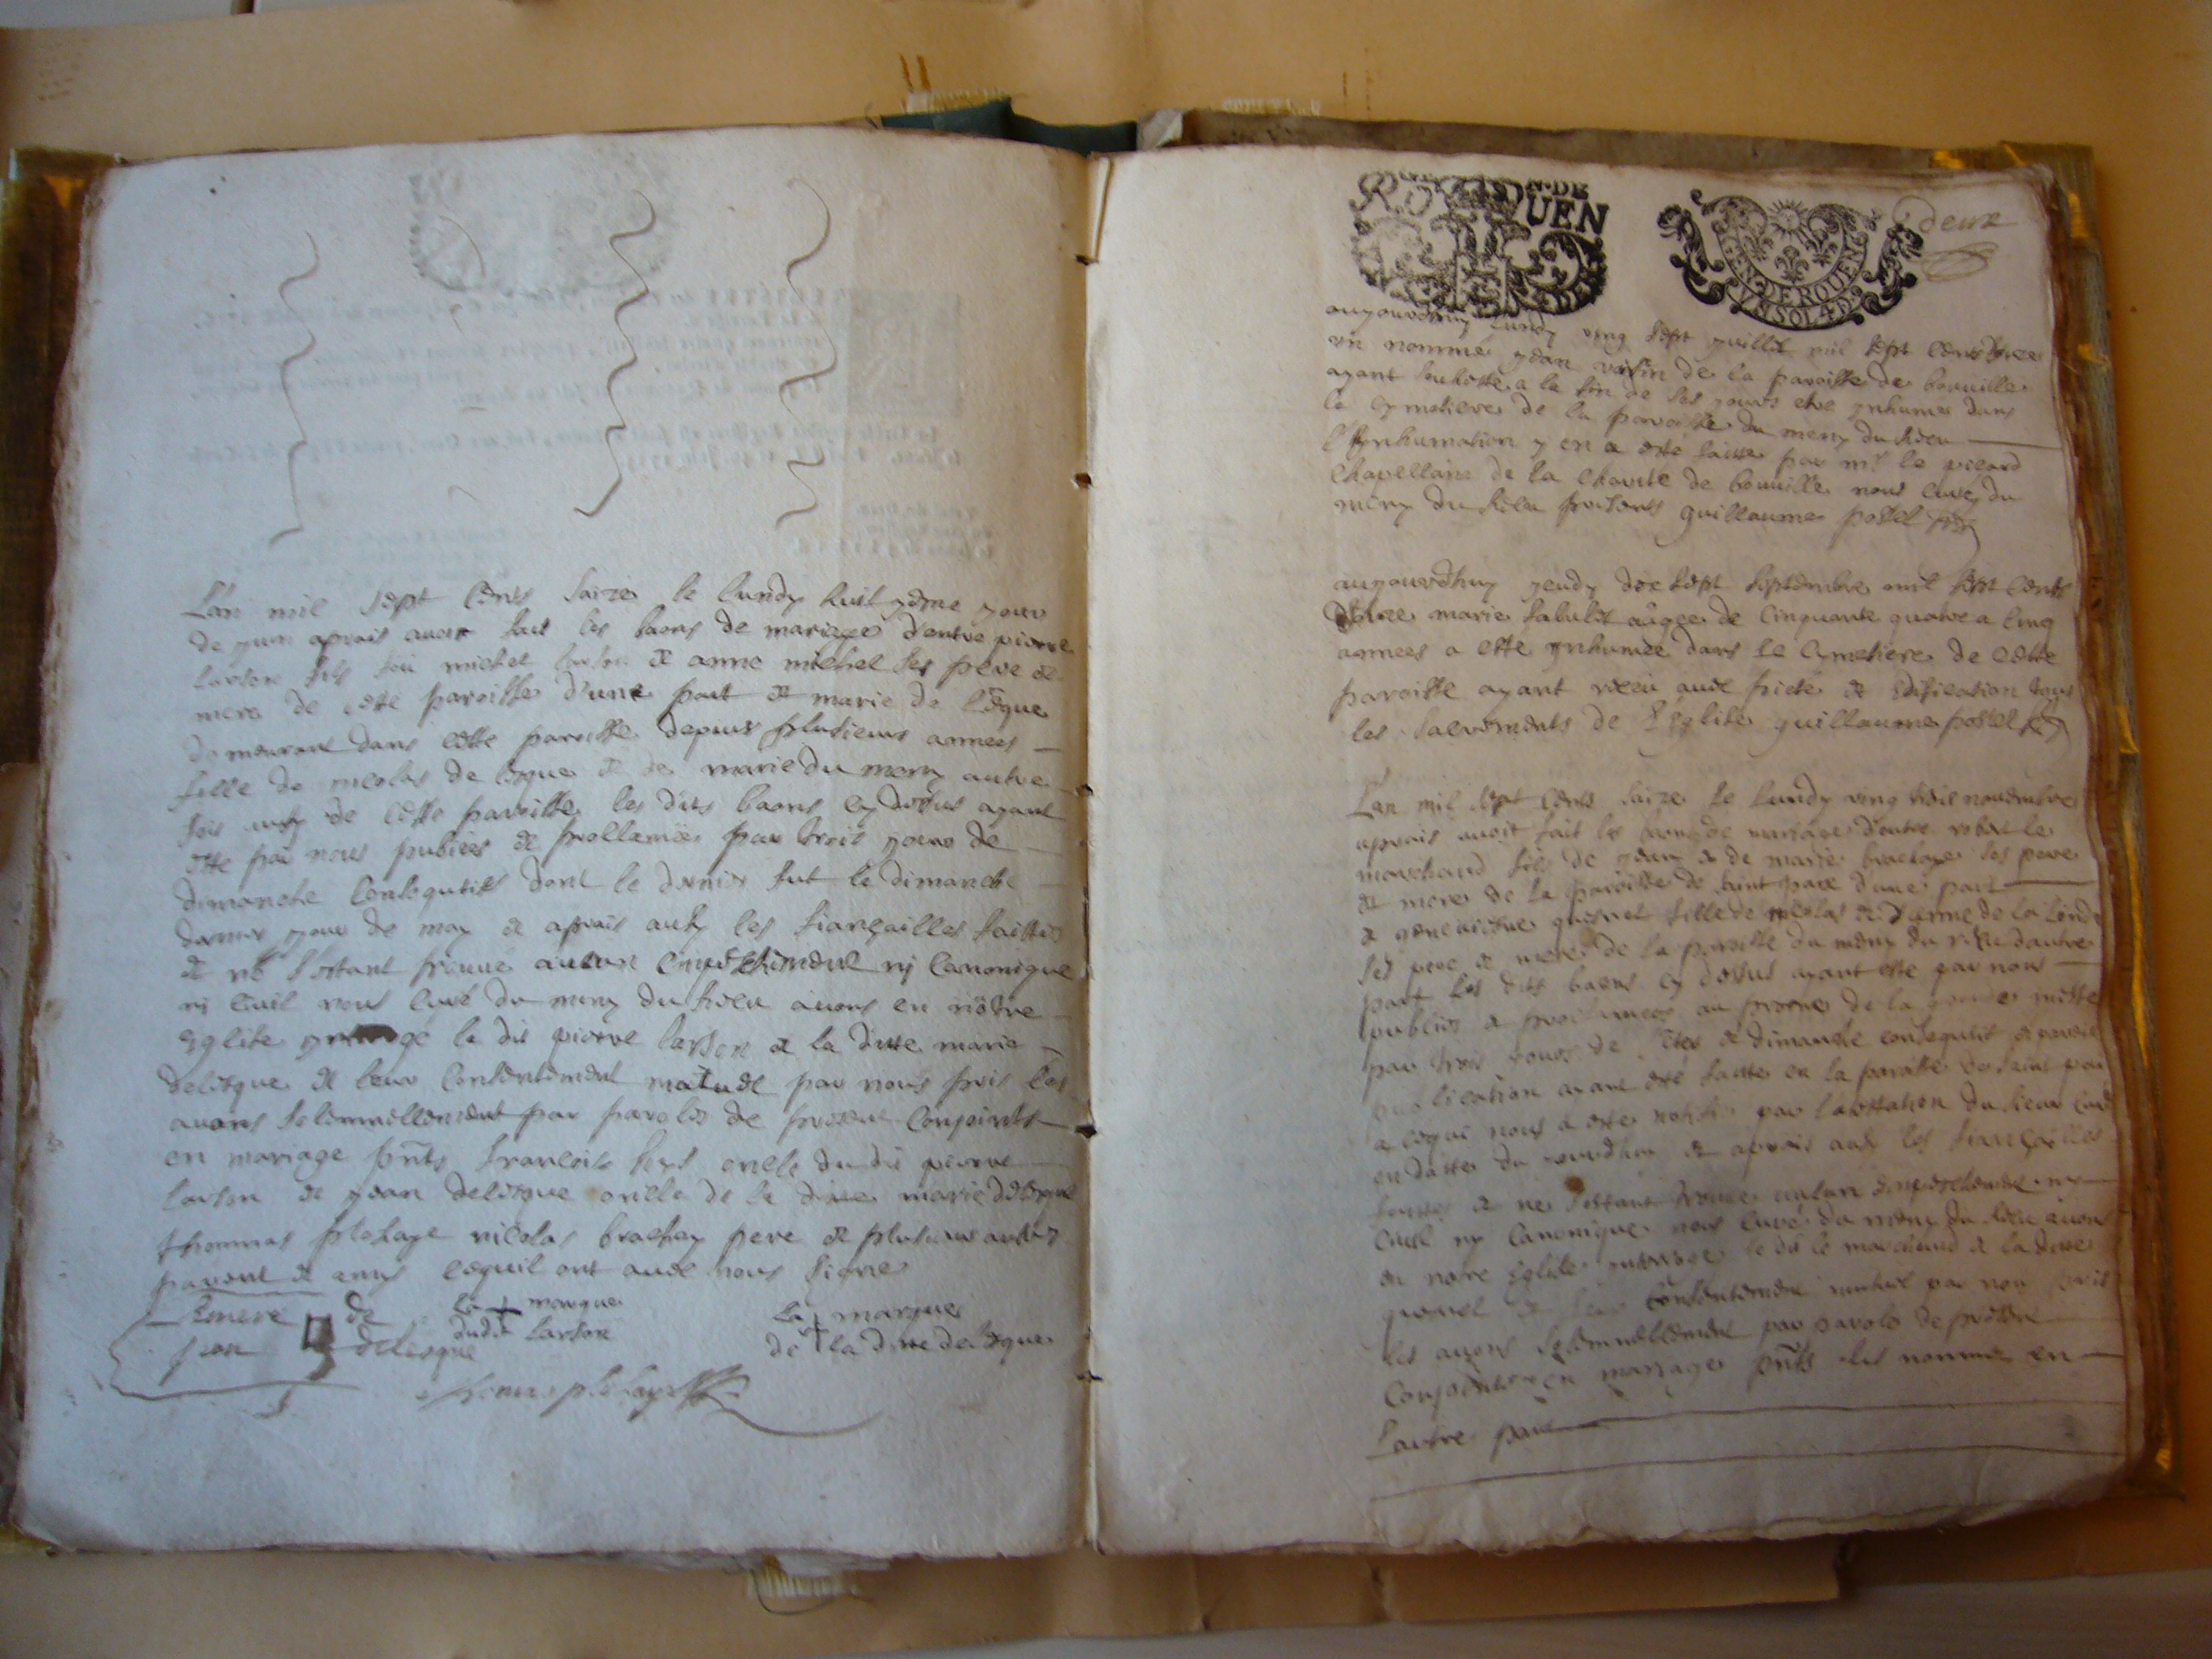 L'an mil sept cents saize le lundy huit yeme jour
de juin aprais auoir fait les baons de mariage d'entre pierre
larson fils feu michel larson et anne michel ses pere et
mere de cette paroisse d'une part et marie de lesque
demeurant dans cette paroisse depuis plusieurs annees
fille de nicolas de lesque et de marie du meny autre
fois aussy de cette paroisse les dits baons cy dessus ayant
este par nous publies et proclamée par trois jours de
dimanche consequtifs dont le dernier fut le dimanche
dernier jour de may et aprais aussy les fiançailles faittes
et ne s'estant trouué aucun empeschement ny canonique
ny ciuil nous curé du meny durescu auons en nôtre
Eglise le dit pierre larson et la ditte marie
delesque et leur consentement mutuel par nous pris les
auons solemnellement par paroles de present conjoints
en mariage pnts francois oncle du dit pierre
larson et jean delesque oncle de la ditte marie delesque
thommas plehaye nicolas brachay pere et plusieurs autres
parent et amys lequil ont auec nous signe
de
jean delesque
la + marque
dudit larson
la + marque
de la ditte delesque
thomas plehaye
N. DE
ROUEN
deux
GEN. DE ROUEN
VN SOL 4 D.
aujourdhuy lundy ving sept juillet mil sept cents
un nommé jean voisin de la paroisse de bouuille
ayant souhetté a la fin de ses jours etre ynhumé dans
le cymetiere de la paroisse du meny durescu
l'ynhumation y en a esté faitte par mr le picard
chapellain de la charité de bouuille nous curé du
meny durescu presents guillaume postel
aujourdhuy jeudy dix sept septembre mil sept cents
marie âgee de cinquante quatre a cinq
annees a esté ynhumée dans le cymetiere de cette
paroisse ayant receu auec pieté et edification tous
les sacrements de l'Eglise guillaume postel
L'an mil sept cents saize le lundy ving trois nouembre
aprais auoir fait les baons de mariage d'entre robert le
marchand fils de jean et de marie brachaye ses pere
et mere de la paroisse de saint paer d'une part
et geneuieue quesnel fille de nicolas et d'anne de la londe
ses pere et mere de la paroisse du meny durescu d'autre
part les dits baons cy dessus ayant esté par nous
publiés et proclamees au prosne de la grande messe
par trois jours de fetes et dimanche consequtif et pareil
publication ayant esté faitte en la paroisse de saint paer
a lequi nous a esté notifié par l'attestation du sieur curé
en datte du jourdhuy et aprais aussy les fiançailles
faittes et ne s'estant trouué aucun empeschement ny
ciuil ny canonique nous curé du meny durescu auons
en notre Eglise interrogé le dit le marchand et la ditte
quesnel et leur consentement mutuel par nous pris
les auons solemnellement par parole de present
conjoints en mariage pnts les nommez en
l'autre part